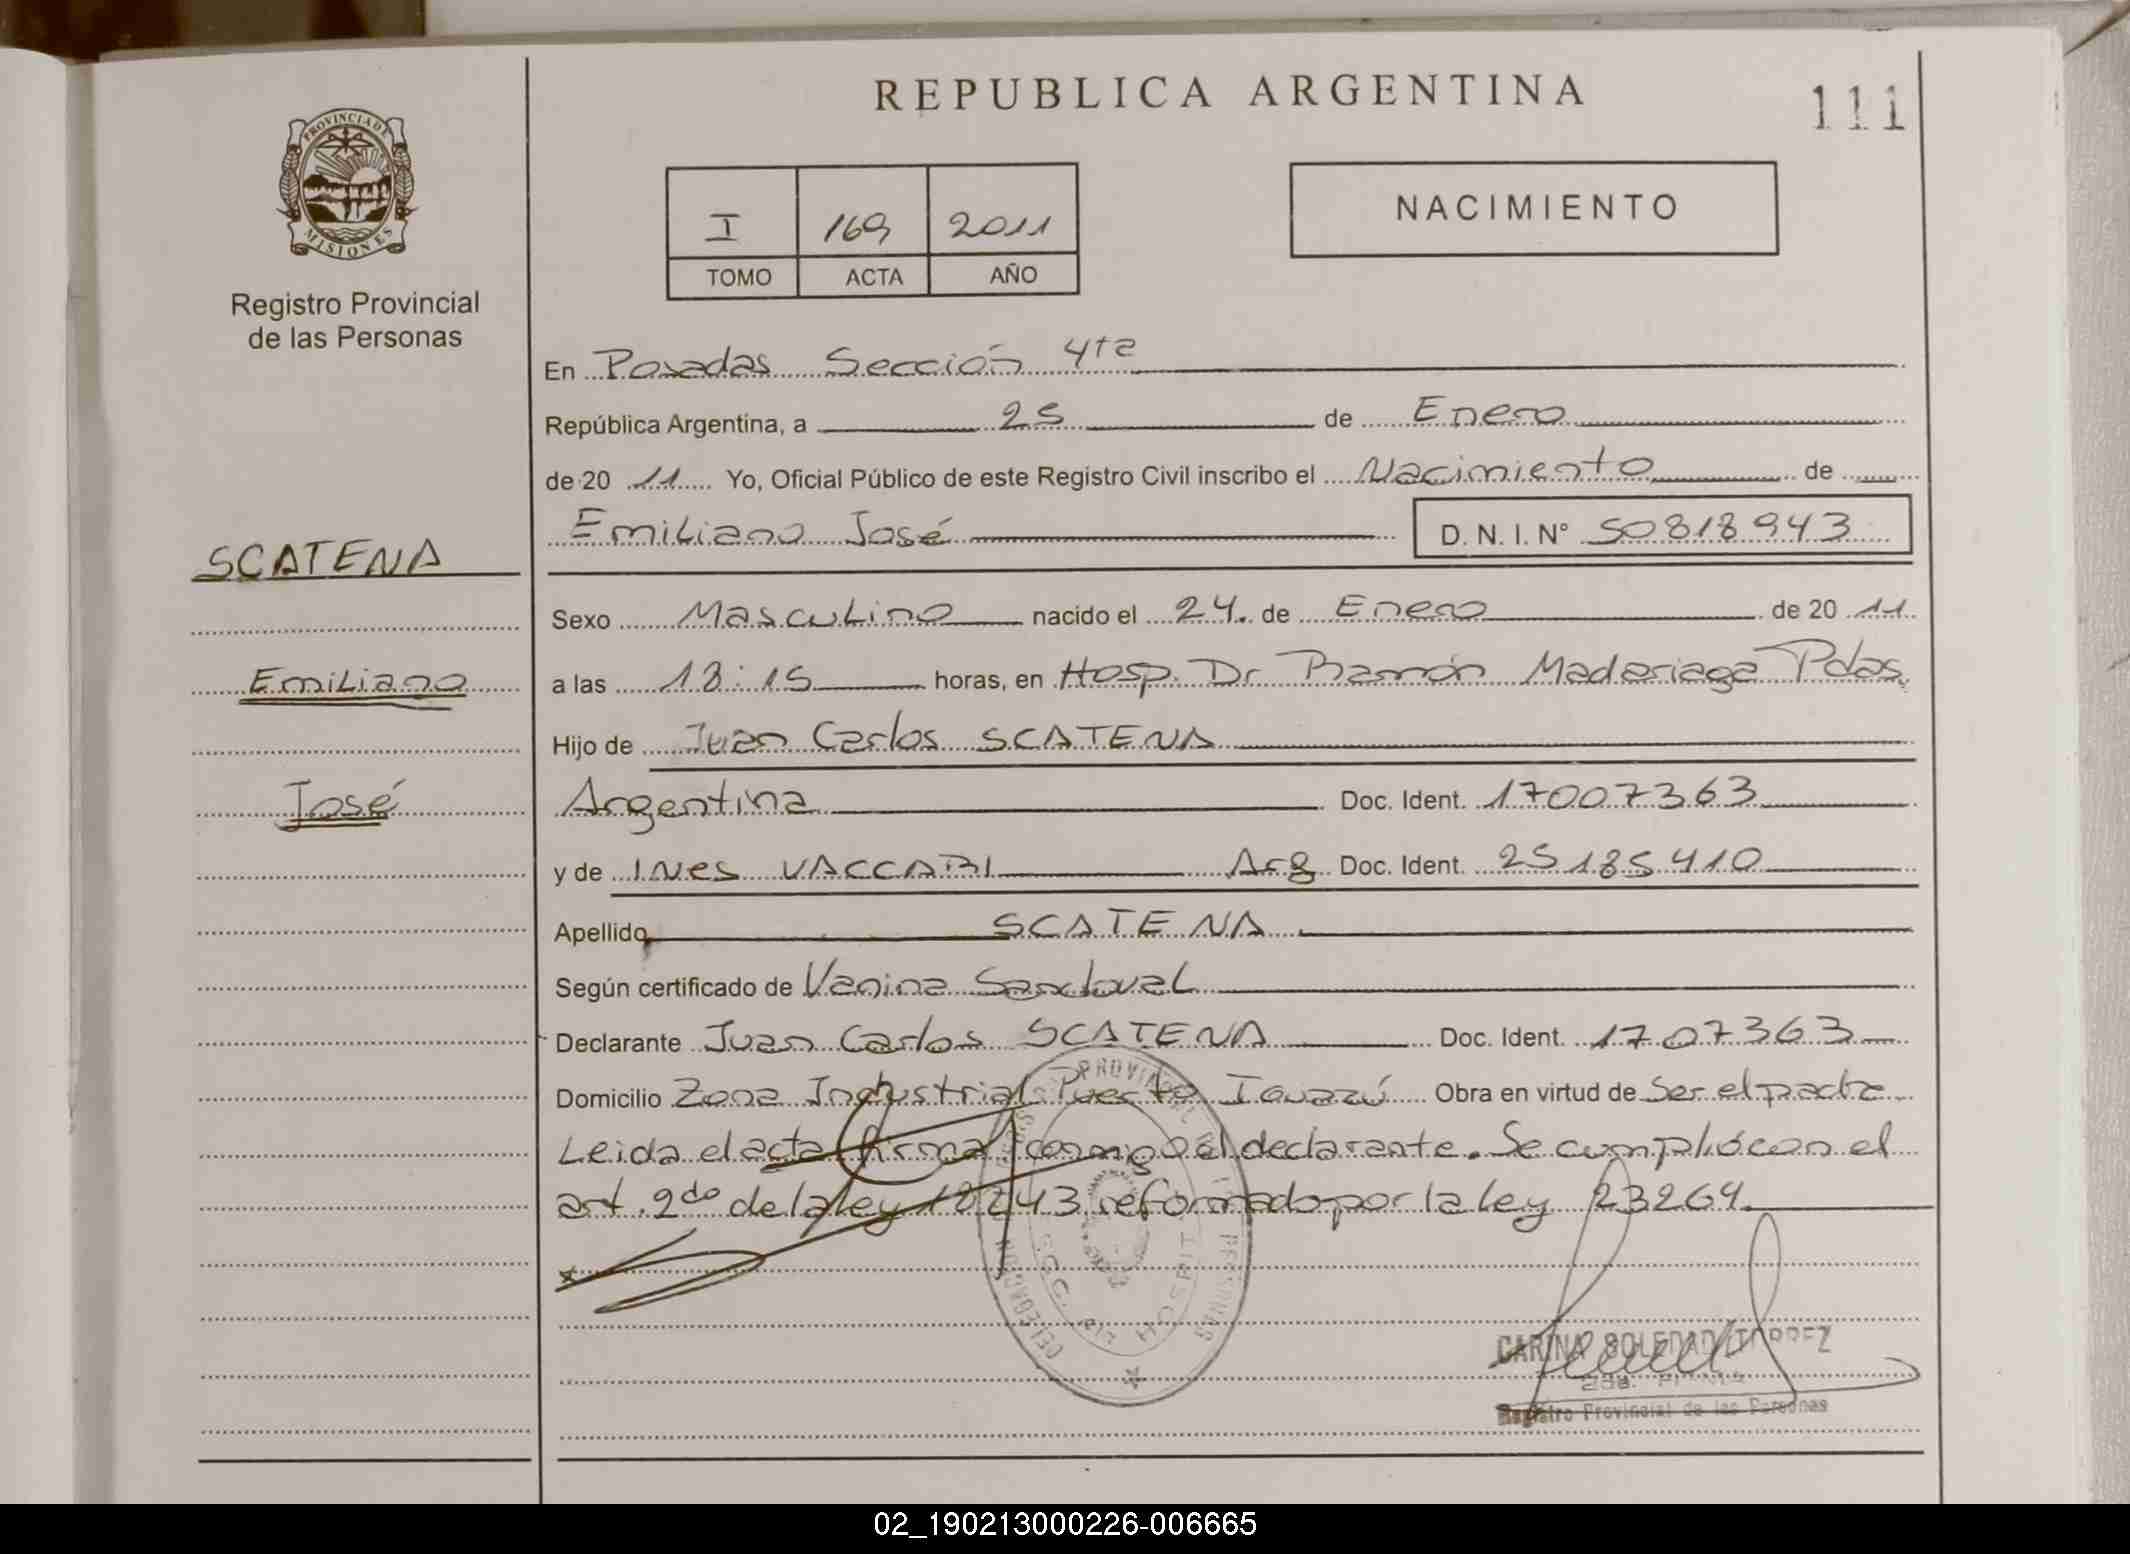 REPUBLICA ARGENTINA
111
PROVINCIA DE
MISIONES
Registro Provincial
de las Personas
I 169 2011
TOMO ACTA AÑO
NACIMIENTO
En Posadas Sección 4ta
República Argentina, a 25 de Enero
de 20 11 Yo, Oficial Público de este Registro Civil inscribo el Nacimiento de
Emiliano José D. N. I. N° 50818943
SCATENA
Emiliano
José
Sexo Masculino nacido el 24. de Enero de 20 11
a las 13:15 horas, en Hosp. Dr Ramón Madariaga Pdas.
Hijo de Juan Carlos SCATENA
Argentina Doc. Ident. 17007363
y de INes VACCARI Arg Doc. Ident. 25185410
Apellido SCATENA
Según certificado de Vanina Sandoval
Declarante Juan Carlos SCATENA Doc. Ident. 1707363
Domicilio Zona Industrial Puerto Iguazú Obra en virtud de Ser el padre
Leida el acta firma conmigo el declarante. Se cumplió con el
art. 2do de la ley 18243 reformado por la ley 23264.
CARINA SOLEDAD TORREZ
Registro Provincial de las Personas
02_190213000226-006665